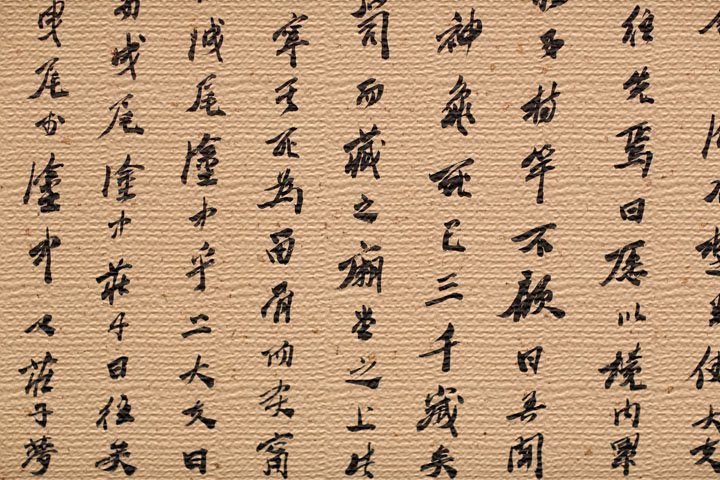 使大夫
往先焉曰願以境內累
子持竿不顧曰吾聞
神龜死已三千歲矣
笥而藏之廟堂之上此
寧其死為留骨
尾塗中乎二大夫曰
曳尾塗中莊子曰往矣
曳尾於塗中 莊子夢